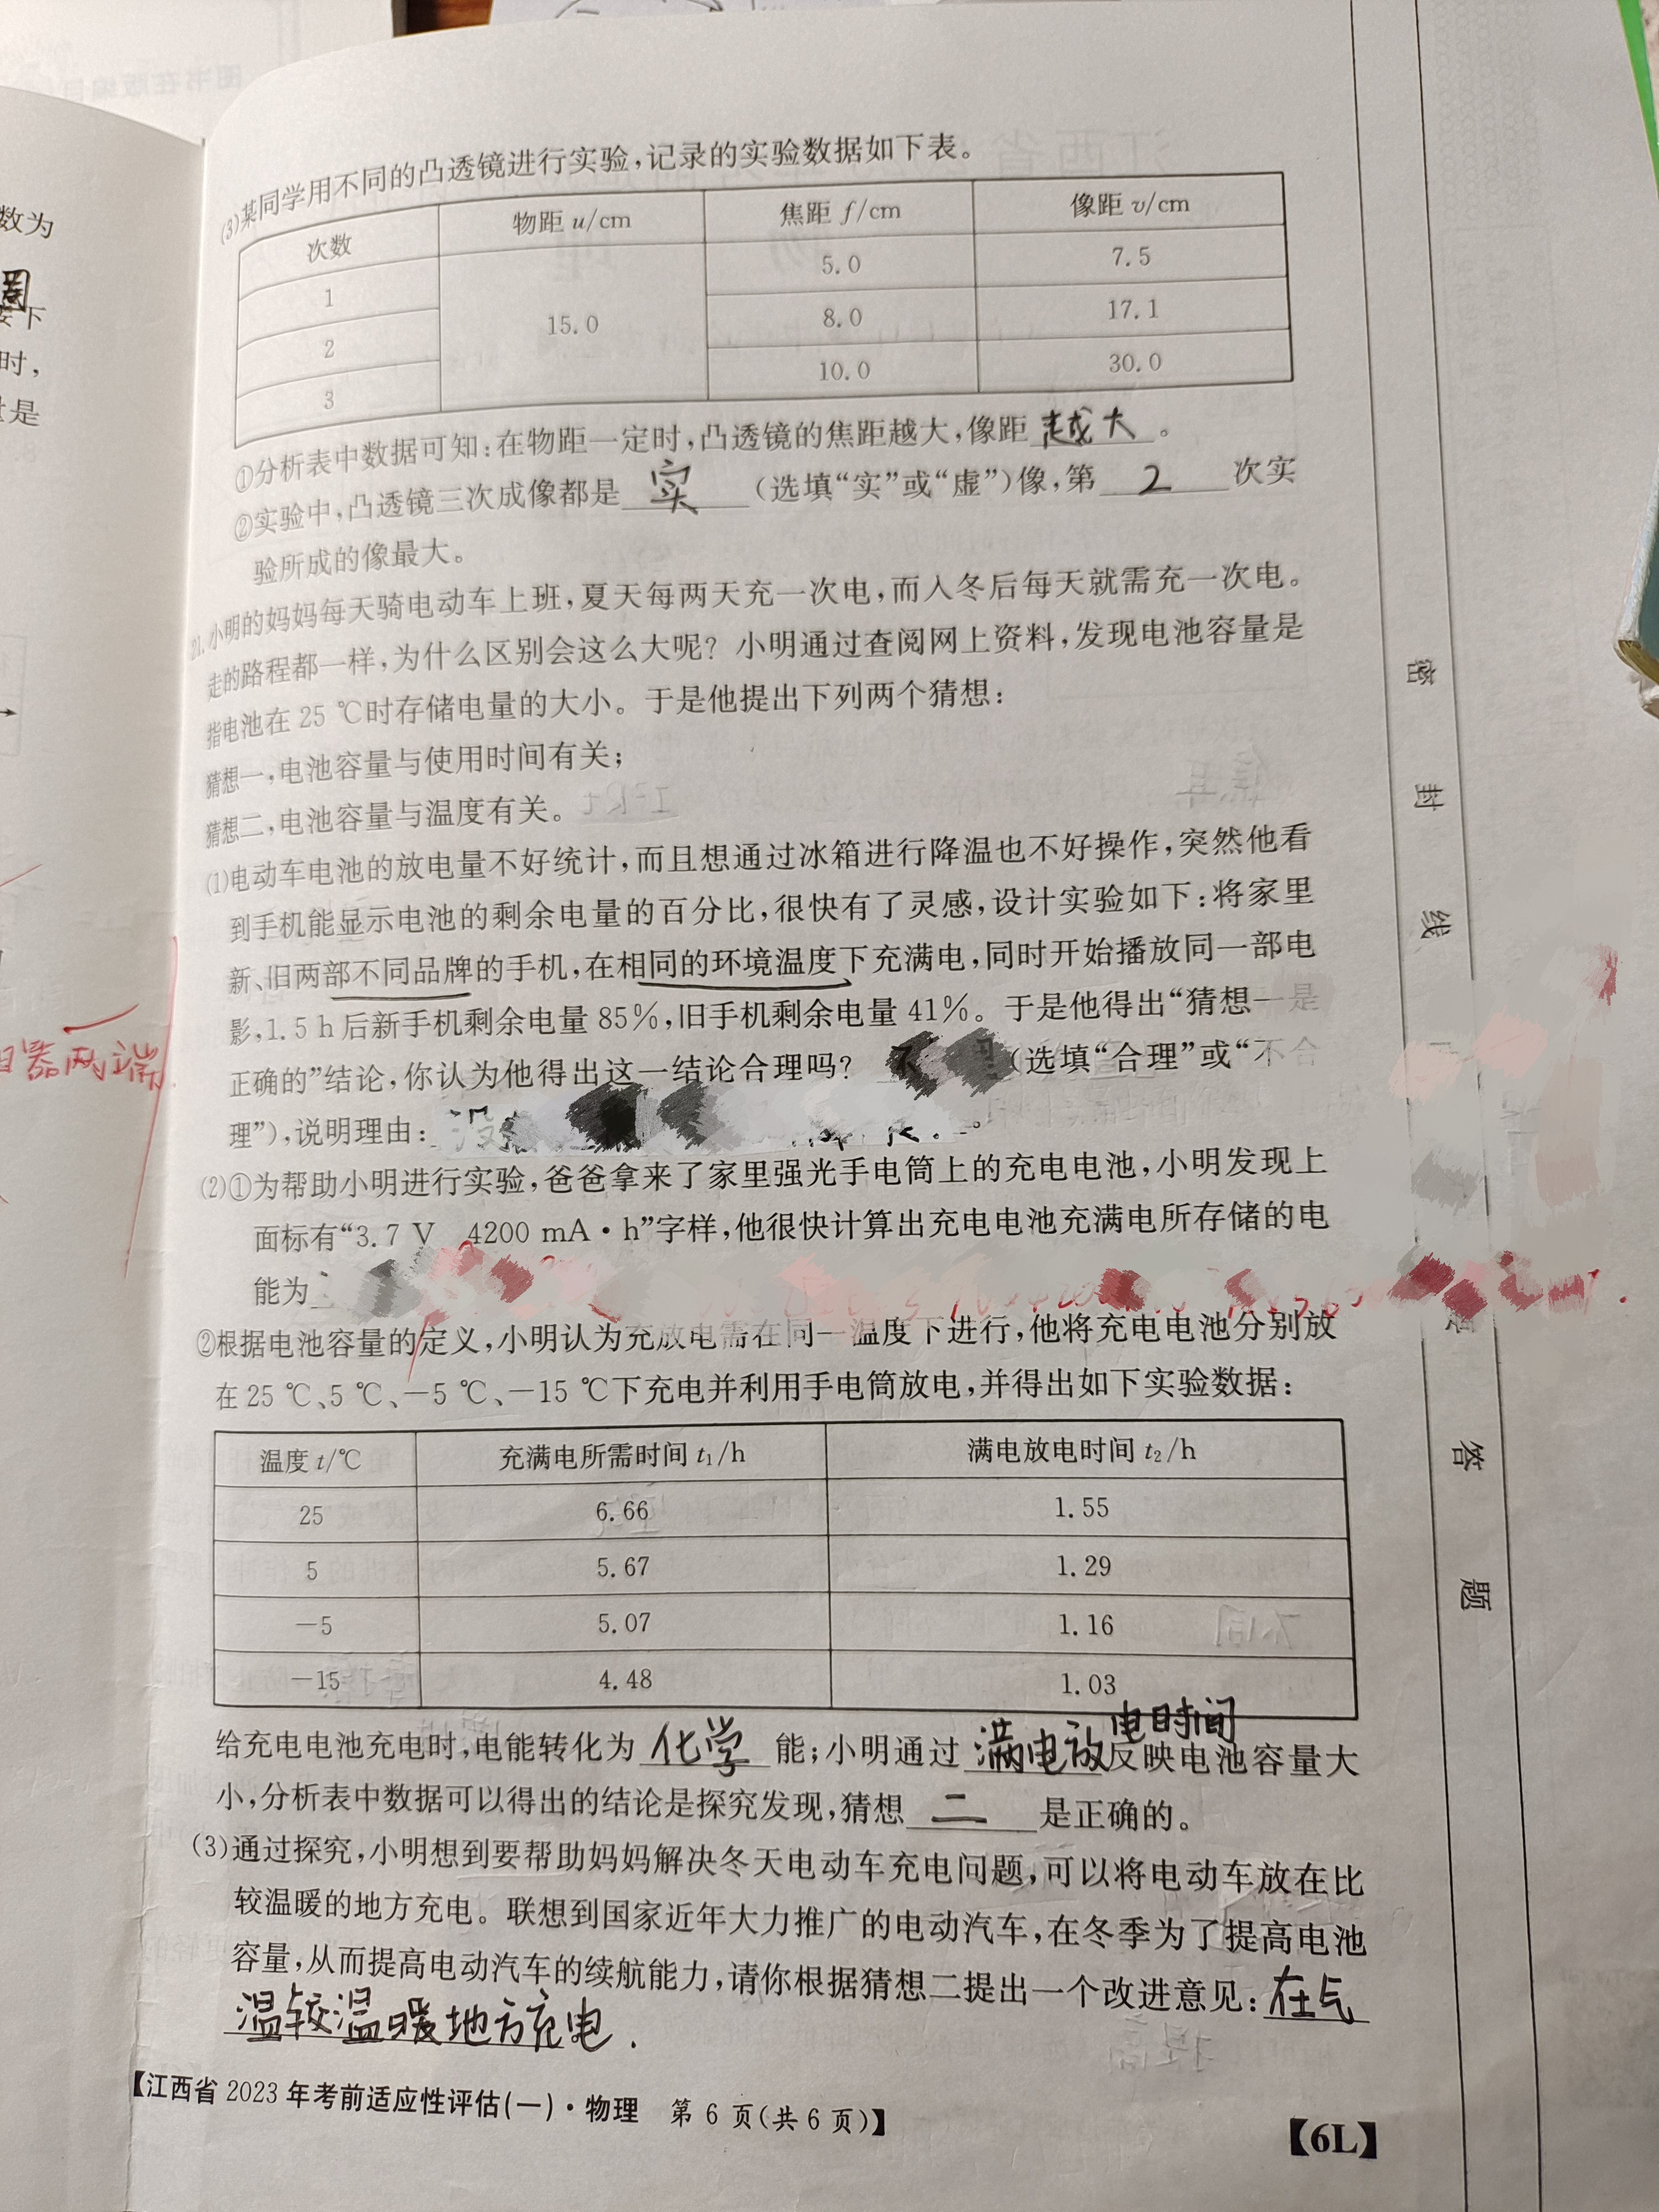 数为
圈
按下
时,
量是
电器两端
(3)某同学用不同的凸透镜进行实验,记录的实验数据如下表。
次数 物距 u/cm 焦距 f/cm 像距 v/cm
1 15.0 5.0 7.5
2 8.0 17.1
3 10.0 30.0
①分析表中数据可知:在物距一定时,凸透镜的焦距越大,像距 越大 。
②实验中,凸透镜三次成像都是 实 (选填“实”或“虚”)像,第 2 次实
验所成的像最大。
21.小明的妈妈每天骑电动车上班,夏天每两天充一次电,而入冬后每天就需充一次电。
走的路程都一样,为什么区别会这么大呢? 小明通过查阅网上资料,发现电池容量是
指电池在 25 ℃时存储电量的大小。于是他提出下列两个猜想:
猜想一,电池容量与使用时间有关;
猜想二,电池容量与温度有关。
(1)电动车电池的放电量不好统计,而且想通过冰箱进行降温也不好操作,突然他看
到手机能显示电池的剩余电量的百分比,很快有了灵感,设计实验如下:将家里
新、旧两部不同品牌的手机,在相同的环境温度下充满电,同时开始播放同一部电
影,1.5 h后新手机剩余电量 85%,旧手机剩余电量 41%。于是他得出“猜想一是
正确的”结论,你认为他得出这一结论合理吗? 不 (选填“合理”或“不合
理”),说明理由: 没
(2)①为帮助小明进行实验,爸爸拿来了家里强光手电筒上的充电电池,小明发现上
面标有“3.7 V 4200 mA·h”字样,他很快计算出充电电池充满电所存储的电
能为
②根据电池容量的定义,小明认为充放电需在同一温度下进行,他将充电电池分别放
在 25 ℃、5 ℃、−5 ℃、−15 ℃下充电并利用手电筒放电,并得出如下实验数据:
温度 t/℃ 充满电所需时间 t₁/h 满电放电时间 t₂/h
25 6.66 1.55
5 5.67 1.29
−5 5.07 1.16
−15 4.48 1.03
给充电电池充电时,电能转化为 化学 能;小明通过 满电放电时间 反映电池容量大
小,分析表中数据可以得出的结论是探究发现,猜想 二 是正确的。
(3)通过探究,小明想到要帮助妈妈解决冬天电动车充电问题,可以将电动车放在比
较温暖的地方充电。联想到国家近年大力推广的电动汽车,在冬季为了提高电池
容量,从而提高电动汽车的续航能力,请你根据猜想二提出一个改进意见: 在气
温较温暖地方充电.
【江西省 2023 年考前适应性评估(一)·物理 第 6 页(共 6 页)】
【6L】
密
封
线
答
题